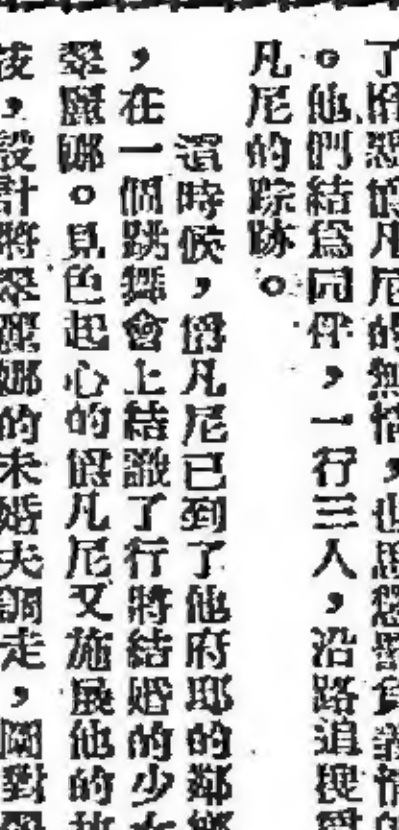 了爵凡尼的無情，也
。他們結爲同伴，一行三人，沿路追搜爵
凡尼的踪跡。
這時候，爵凡尼已到了他府邸的鄰鄉
，在一個跳舞會上結識了行將結婚的少女
翠麗娜。見色起心的爵凡尼又施展他的故
技，設計將翠麗娜的未婚夫調走，圖對翠